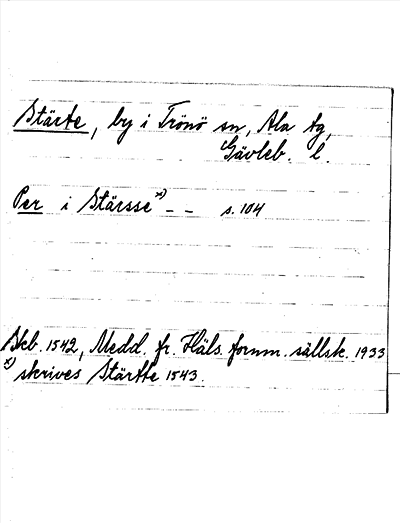 Stärte, by i Trönö sn, Ala tg,
Gävleb. l.
Per i Stärsse x) - - s. 104
Skb. 1542, Medd. fr. Häls. fornm. sällsk. 1933
x) skrives Stärtte 1543.